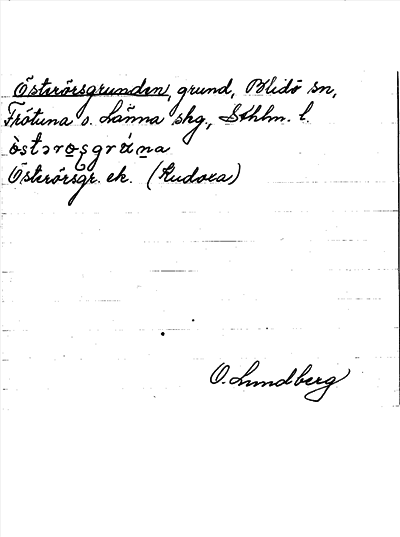 Österörsgrunden, grund, Blidö sn,
Frötuna o. Länna skg., Sthlm. l.
Österörsgr. ek. (Rudoxa)
O. Lundberg